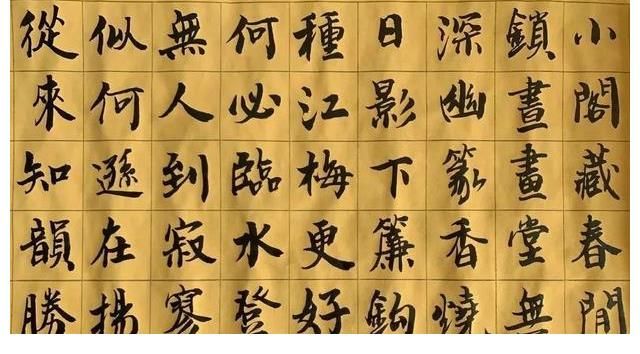 小閣藏春閒
鎖晝畫堂無
深幽篆香燒
日影下簾鈎
種江梅更好
何必臨水登
無人到寂寥
似何遜在揚
從來知韻勝